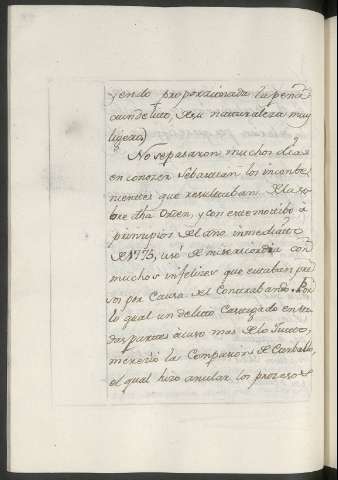 yendo proporcionada la pena
a un delito, de su naturaleza muy
ligero
No se pasaron muchos dias
en conozer Sebastian los inconbe
nientes que resultaban de la so
bre dha Orden, y con este motibo á
prinzipios del año inmediato
de 1775, usó de misericordia con
muchos infelizes que estaban pre
sos por Causa del Contrabando. Por
lo qual un delito Castigado en to
das partes acaso mas de lo Justo,
merezió la Compasion de Carballo,
el qual hizo anular los prozesos